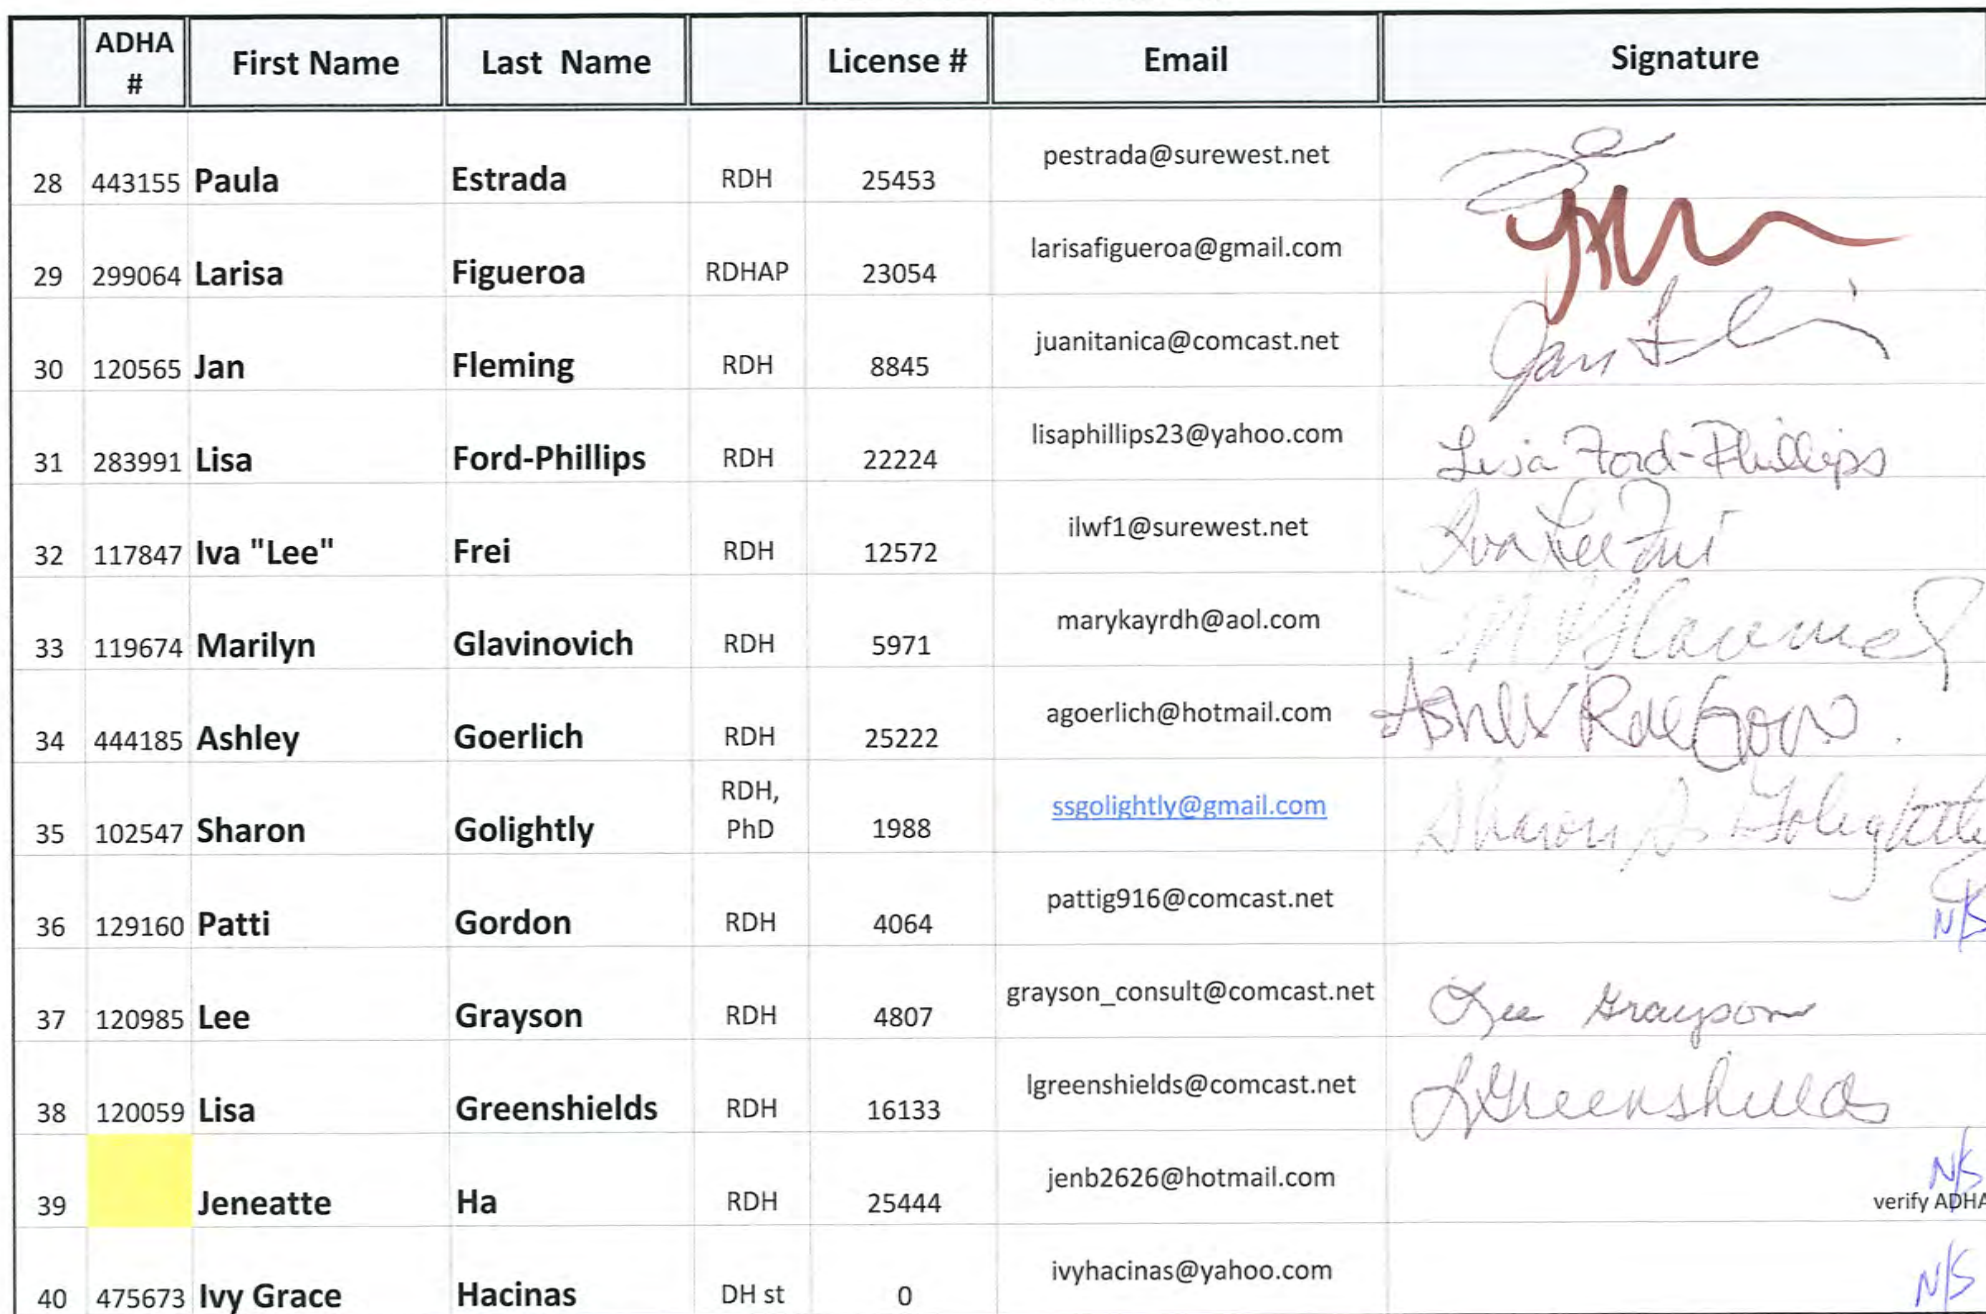 ADHA # First Name Last Name License # Email Signature
28 443155 Paula Estrada RDH 25453 pestrada@surewest.net
29 299064 Larisa Figueroa RDHAP 23054 larisafigueroa@gmail.com
30 120565 Jan Fleming RDH 8845 juanitanica@comcast.net Jan
31 283991 Lisa Ford-Phillips RDH 22224 lisaphillips23@yahoo.com Lisa Ford-Phillips
32 117847 Iva "Lee" Frei RDH 12572 ilwf1@surewest.net Iva Lee Frei
33 119674 Marilyn Glavinovich RDH 5971 marykayrdh@aol.com
34 444185 Ashley Goerlich RDH 25222 agoerlich@hotmail.com Ashley Rae
35 102547 Sharon Golightly RDH, PhD 1988 ssgolightly@gmail.com Sharon S. Golightly
36 129160 Patti Gordon RDH 4064 pattig916@comcast.net N/S
37 120985 Lee Grayson RDH 4807 grayson_consult@comcast.net Lee Grayson
38 120059 Lisa Greenshields RDH 16133 lgreenshields@comcast.net LGreenshields
39 Jeneatte Ha RDH 25444 jenb2626@hotmail.com N/S
verify ADHA
40 475673 Ivy Grace Hacinas DH st 0 ivyhacinas@yahoo.com N/S